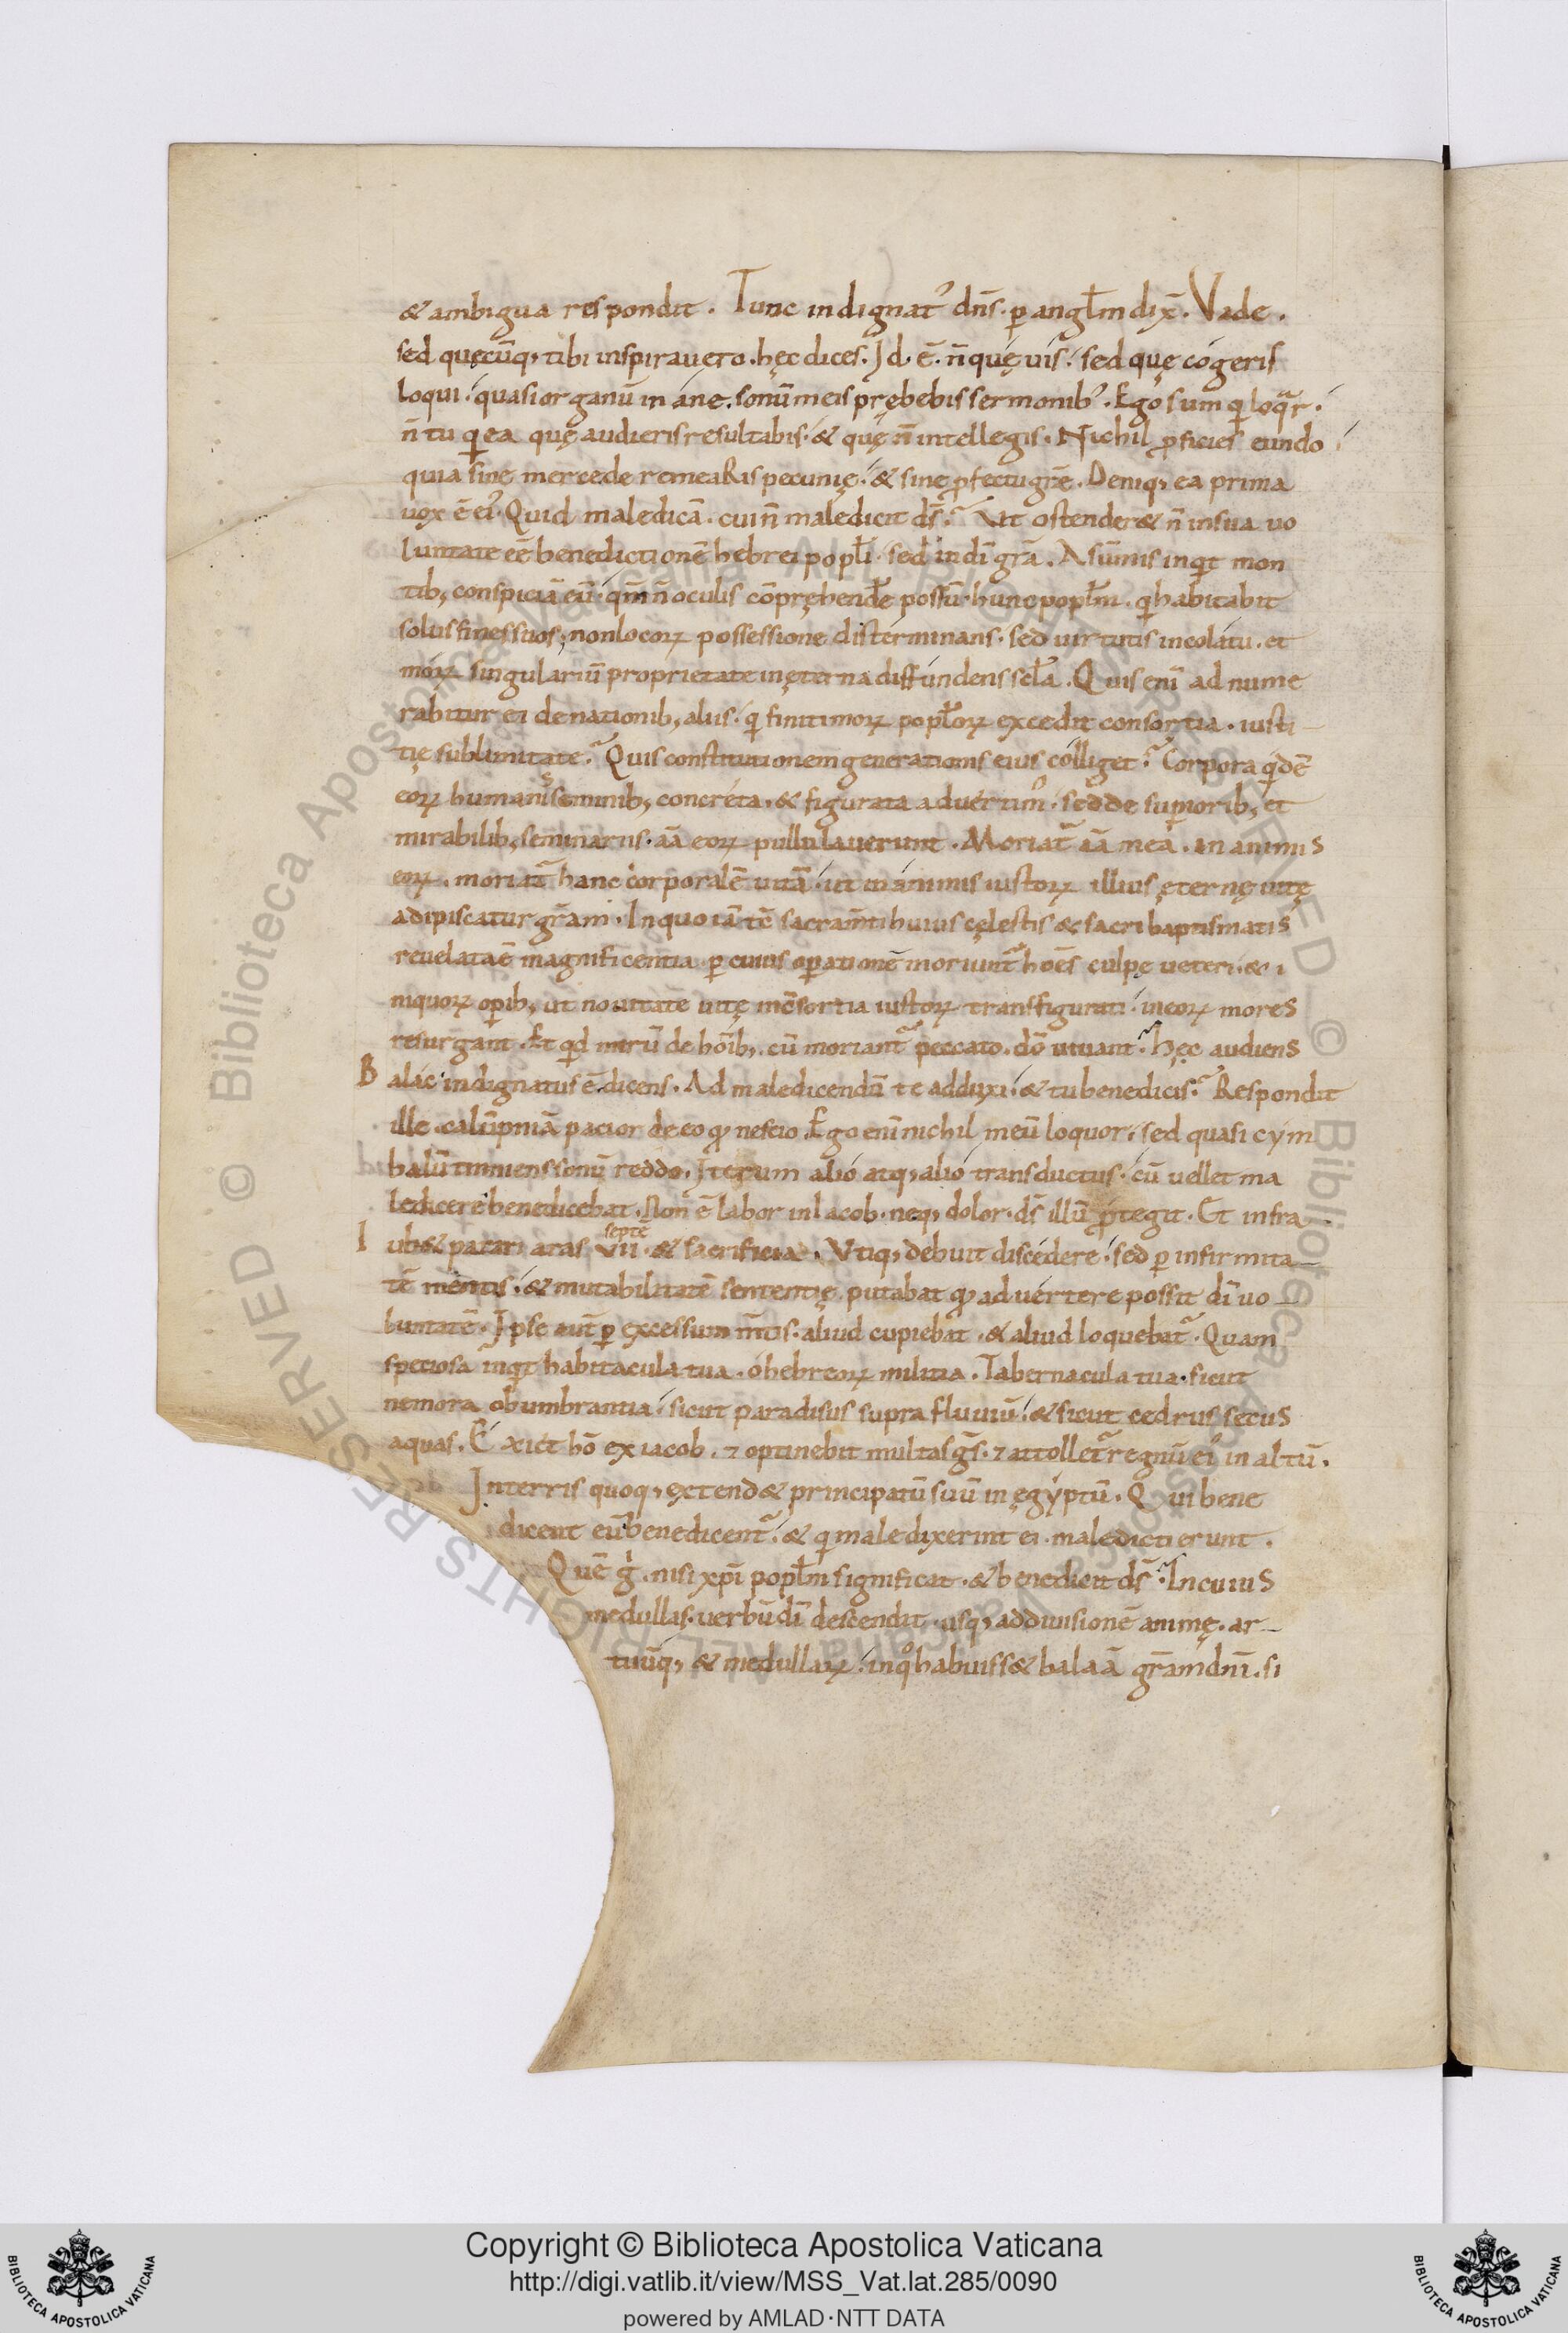 & ambigua respondit. Tunc indignat᾽ dn̄s. ꝑ angłm dix̄. Vade.
sed quęcūq; tibi inspirauero. hęc dices. Id. ē. n̄ quę uis. sed quę cógeris
loqui. quasi organūináne. sonū meis pręhebis sermonib᾽. Ego sum qͥ loqͣr.
n̄ tu qͥ ea quę audieris resultabis. & quę n̄ intellegis. Nichil ꝓficies eundo
quia sine mercede remeaRis pecunię. & sine ꝓfectu grē. Deniq; ea prima
uox ē ei᾽. Quid maledicā. cui n̄ maledicit ds̄. Vt ostender& n̄ in sua uo
luntate eē benedictionē hebrei popłi. sed in dī grā. A sūmis inqͥt mon
tib; conspiciā eū. qm̄ n̄ oculis cōpręhendēre possū hunc popłm. qͥ habitabit
solus fines suos, non locoꝝ possessione disterminans. sed uirtutis incolátu. et
móꝝ singulariū proprietate in ęterna diffúndens scła. Quis enī adnume
rabitur ei de nationib; aliis. qͥ finitimoꝝ popłoꝝ excedit consortia. iusti-
tię sublimitate. Quis constitutionem generationis eius cólliget. Corpora qͥdē
eoꝝ humanis seminib; concréta. & figurata aduertim᾽. sed de suꝑiorib; et
mirabilib; seminariis. aā eoꝝ pullulauerunt. Moriat᷑ aā mea. in animis
eoꝝ. moriat᷑ hanc corporalē uitā. ut in ánimis iustoꝝ illius ęternę uitę
adipiscatur grā̄m. In quo iā tē sacram̄ti huius cęlestis & sacri baptismatis
reuelata ē magnificentia. ꝑ cuius oꝑationē moriunt᷑ hoēs culpę ueteri. & i
niquoꝝ oꝑib; ut nouitatē uitę in cōsortia iustoꝝ transfigurati. in eoꝝ mores
resurgant. Et qͥd mirū de hōib;. cū moriant᷑ peccato. dō uiuant. hęc audiens
Balác indignatus ē dicens. Ad maledicendū te adduxi. & tu benedicis. Respondit
ille. calūpniā pacior de eo qͦ nescio. Ego enī nichil meū loquor. sed quasi cym
balū tinniens sonū reddo. Iterum alió atq; alió transductus. cū uellet ma
ledicere benedicebat. Non ē labor in Iacob. neq; dolor. ds̄ illū ꝓtegit. Et infra
Iub& parari aras septē vii. & sacrificia. Vtiq; debuit discédere. sed ꝑ infirmita-
tē mentis. & mutabilitatē sententię. putabat qͦ aduértere possit dī uo-
luntatē. Ipse aut̄ ꝑ excessum m̄tis. aliud cupiebat. & aliud loquebat᷑. Quam
speciosa inqͥt habitacula tua. ó hebreoꝝ militia. Tabernacula tua. sicut
nemora obumbrantia. sicut paradisus supra fluuiū. & sicut cedrus secus
aquas. Exiet hō ex iacob. ⁊ optinebit multas gs̄. ⁊ attollet᷑ regnū ei᾽ in altū.
In terris quoq; extend& principatū suū in ęgýptū. Qui bene
dicent eū benedicent᷑. & qͥ maledixerint ei. maledicti erunt.
Quē gͦ. nisi xp̄i popłm significat. & benedicit ds̄. In cuius
medullas. uerbū dī descendit. usq; ad diuisionē animę. ar-
tuūq; & medullaꝝ. in qͦ habuiss& balaā grām dn̄i. si
Copyright © Biblioteca Apostolica Vaticana
http://digi.vatlib.it/view/MSS_Vat.lat.285/0090
powered by AMLAD·NTT DATA
BIBLIOTECA APOSTOLICA VATICANA
BIBLIOTECA APOSTOLICA VATICANA